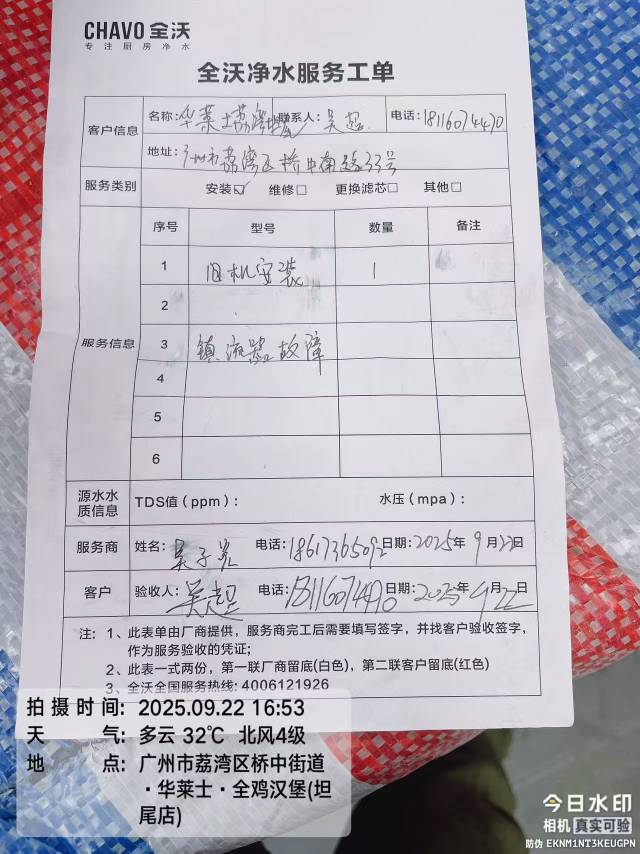 CHAVO 全沃
专注厨房净水
全沃净水服务工单
客户信息
名称: 华莱士荔湾 联系人: 吴超 电话: 18116074470
地址: 广州市荔湾区桥中南路33号
服务类别 安装☑ 维修□ 更换滤芯□ 其他□
服务信息
序号 型号 数量 备注
1 旧机安装 1
2
3 镇流器故障
4
5
6
源水水质信息 TDS值(ppm): 水压(mpa):
服务商 姓名: 吴子光 电话: 18617365092 日期: 2025年9月22日
客户 验收人: 吴超 电话: 18116074470 日期: 2025年9月22日
注: 1、此表单由厂商提供,服务商完工后需要填写签字,并找客户验收签字,
作为服务验收的凭证;
2、此表一式两份,第一联厂商留底(白色),第二联客户留底(红色)
3、全沃全国服务热线: 4006121926
拍摄时间: 2025.09.22 16:53
天气: 多云 32℃ 北风4级
地点: 广州市荔湾区桥中街道
·华莱士·全鸡汉堡(坦
尾店)
今日水印
相机 真实可验
防伪 EKNM1NT3KEUGPN